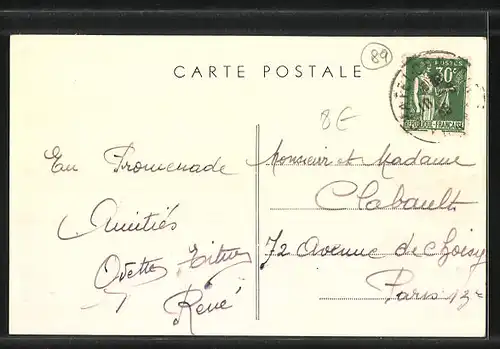 89
CARTE POSTALE
POSTES
30c
REPUBLIQUE FRANCAISE
8€
En Promenade
Amitiés
Odette
René
Monsieur et Madame
Clabault
72 Avenue de Choisy
Paris 13e